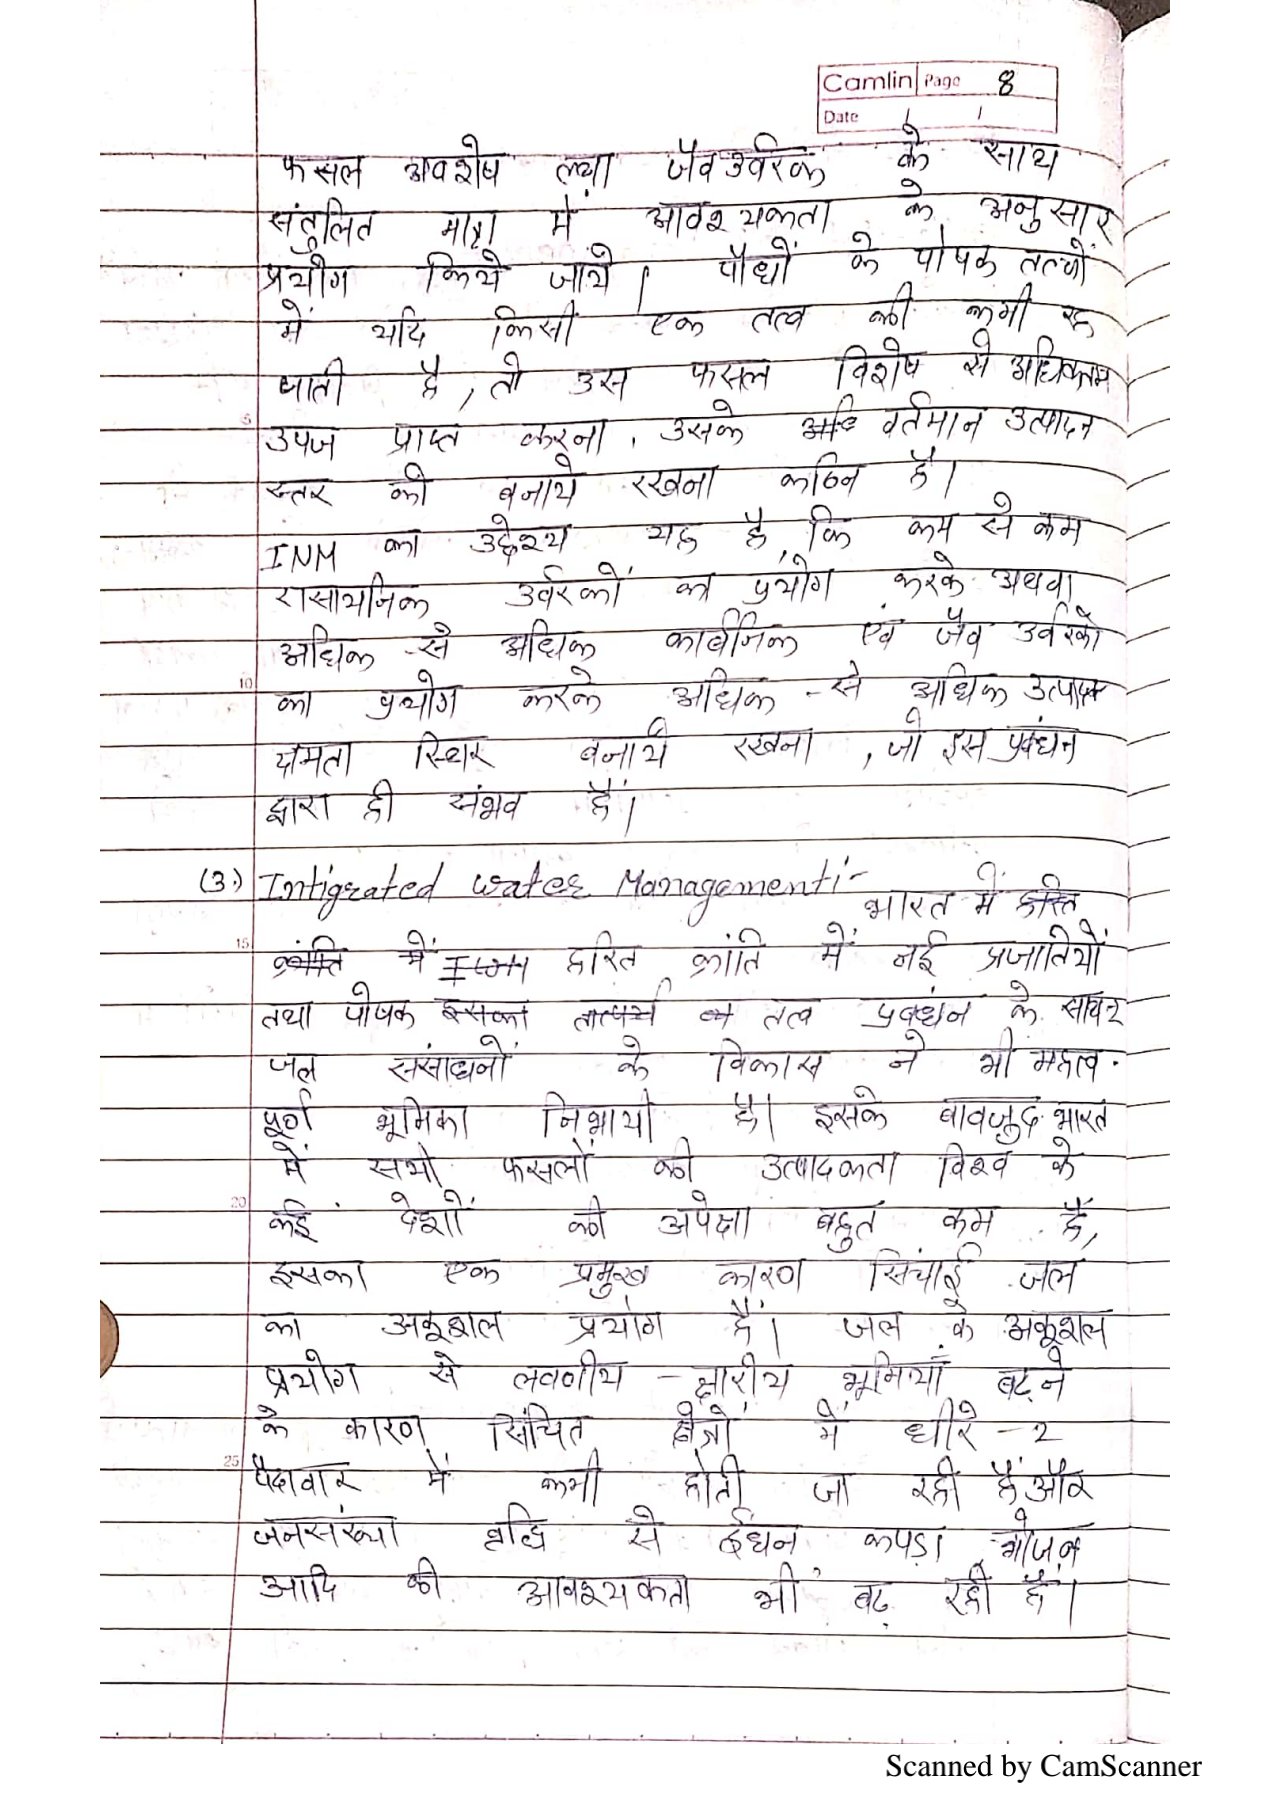 Camlin Page 8
Date / /
फसल अवशेष तथा जैव उर्वरक के साथ
संतुलित मात्रा में आवश्यकता के अनुसार
प्रयोग किये जाये। पौधों के पोषक तत्वों
में यदि किसी एक तत्व की कमी रह
जाती है, तो उस फसल विशेष से अधिकतम
5
उपज प्राप्त करना, उसके वर्तमान उत्पादन
स्तर को बनाये रखना कठिन है।
INM का उद्देश्य यह है, कि कम से कम
रासायनिक उर्वरकों का प्रयोग करके अथवा
अधिक से अधिक कार्बनिक एवं जैव उर्वरको
10
का प्रयोग करके अधिक - से अधिक उत्पादक
क्षमता स्थिर बनाये रखना, जो इस प्रबंधन
द्वारा ही संभव है।
(3.) Intigrated water Management:-
भारत में हरित
15
क्रांति में हरित क्रांति में नई प्रजातियों
तथा पोषक इसका तात्पर्य तत्व प्रबधंन के साथ 2
जल संसाधनों के विकास ने भी महत्व-
पूर्ण भूमिका निभायी है। इसके बावजुद भारत
में सभी फसलों की उत्पादकता विश्व के
20
कई देशों की अपेक्षा बहुत कम है,
इसका एक प्रमुख कारण सिंचाई जल
का अकूशल प्रयोग है। जल के अकूशल
प्रयोग से लवणीय - क्षारीय भूमियाँ बढ़ने
के कारण सिंचित क्षेत्रों में धीरे - 2
25
पैदावार में कमी होती जा रही है और
जनसंख्या वृद्धि से ईंधन कपड़ा भोजन
आदि की आवश्यकता भी बढ़ रही है।
Scanned by CamScanner